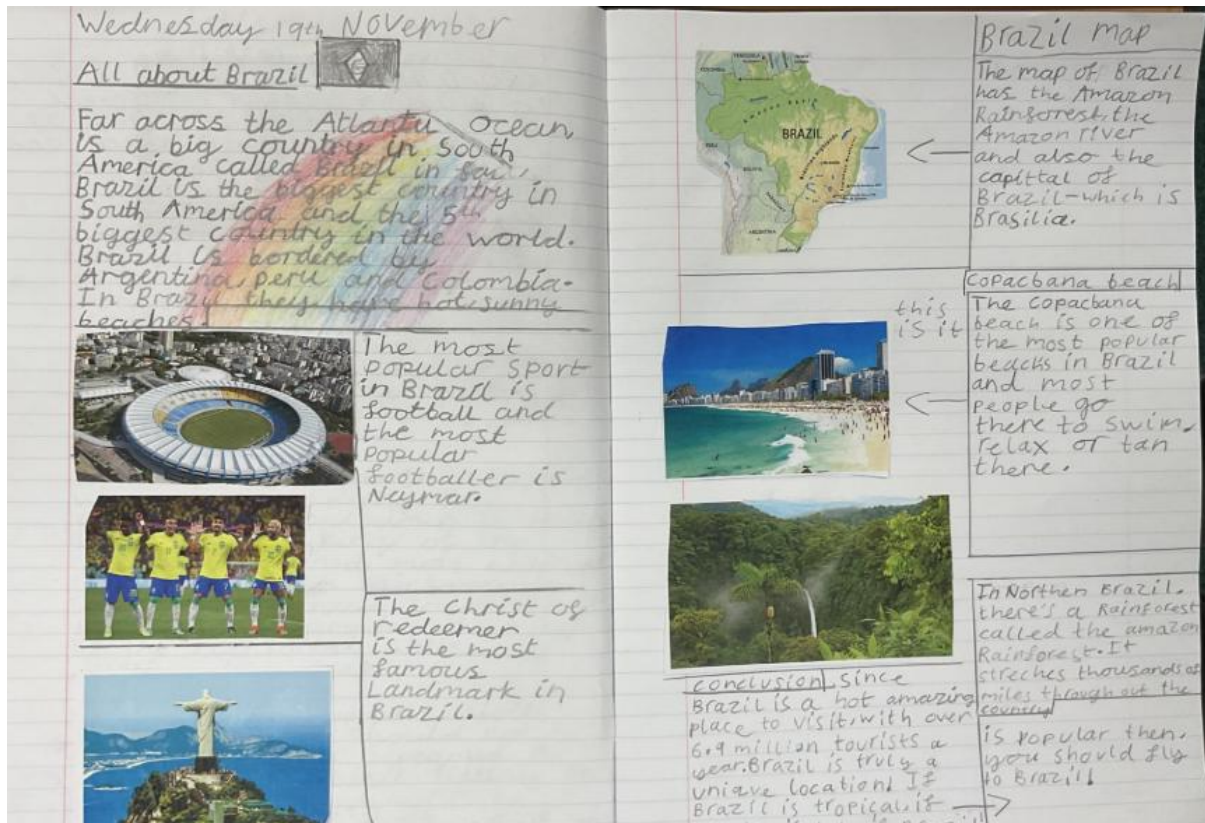 Wednesday 19th November
All about Brazil
Far across the Atlantic Ocean,
is a big country in South
America called Brazil in
Brazil is the biggest country in
South America and the 5th
biggest country in the world.
Brazil is bordered by
Argentina, peru and Colombia.
In Brazil they have hot, sunny
beaches.
The most
popular sport
in Brazil is
football and
the most
popular
footballer is
Neymar.
The Christ of
redeemer
is the most
famous
Landmark in
Brazil.
Brazil map
BRAZIL
VENEZUELA
COLOMBIA
PERU
BOLIVIA
ARGENTINA
The map of Brazil
has the Amazon
Rainforest, the
Amazon river
and also the
capittal of
Brazil-which is
Brasilia.
Copacbana beach
this
is it
The Copacbana
beach is one of
the most popular
beachs in Brazil
and most
people go
there to swim,
relax or tan
there.
In Northen Brazil,
there's a Rainforest
called the amazon
Rainforest. It
streches thousands of
miles through out the
country
conclusion Since
Brazil is a hot amazing
place to visit, with over
6.9 million tourists a
year. Brazil is truly a
uniqve location! If
Brazil is tropical, if
is popular then,
you should fly
to Brazil!